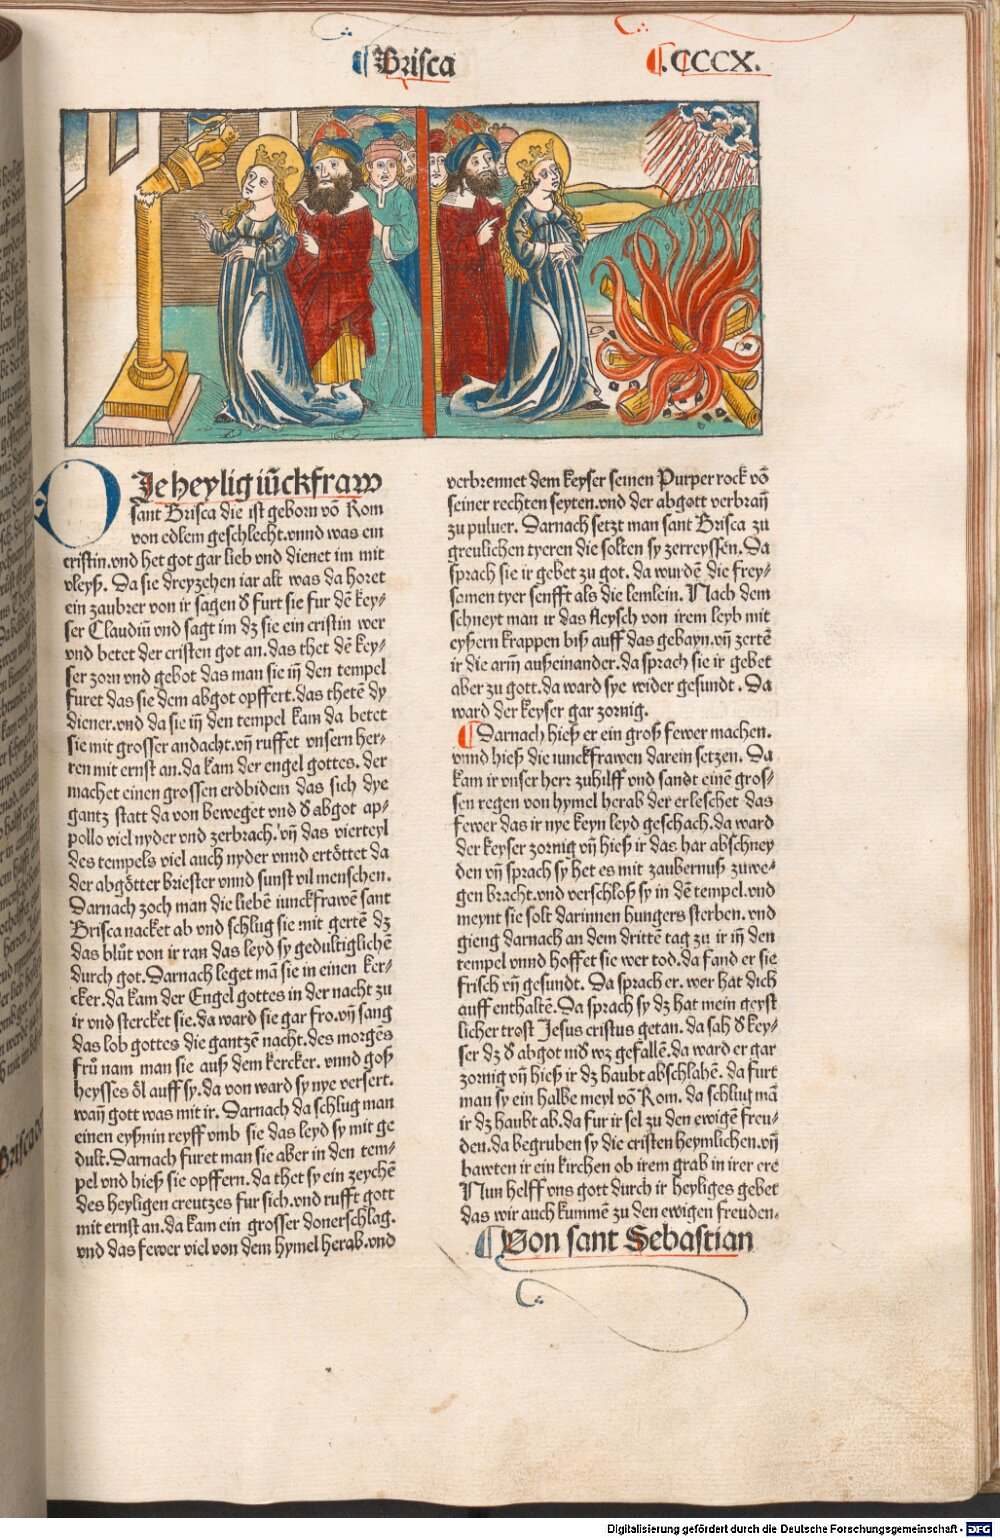 Brisca
.CCCX.
DJe heylig iūckfraw
sant Brisca die ist geborn vō Rom
von edlem geschlecht. vnnd was ein
cristin. vnd het got gar lieb vnd dienet im mit
vleyß. Da sie dreyzehen iar alt was da horet
ein zaubrer von ir sagen d̕ furt sie fur dē key⸗
ser Claudiū vnd sagt im dz sie ein cristin wer
vnd betet der cristen got an. das thet dē key⸗
ser zorn vnd gebot das man sie in̄ den tempel
furet das sie dem abgot opffert. das thetē dy
diener. vnd da sie in̄ den tempel kam da betet
sie mit grosser andacht. vn̄ ruffet vnsern her⸗
ren mit ernst an. da kam der engel gottes. der
machet einen grossen erdbidem das sich dye
gantz statt da von beweget vnd d̕ abgot ap⸗
pollo viel nyder vnd zerbrach. vn̄ das vierteyl
des tempels viel auch nyder vnnd ertöttet da
der abgötter briester vnnd sunst vil menschen.
Darnach zoch man die liebē iunckfrawē sant
Brisca nacket ab vnd schlug sie mit gertē dz
das blůt von ir ran das leyd sy gedultiglichē
durch got. Darnach leget mā sie in einen ker⸗
cker. da kam der Engel gottes in der nacht zu
ir vnd stercket sie. da ward sie gar fro. vn̄ sang
das lob gottes die gantzē nacht. des morgēs
frů nam man sie auß dem kercker. vnnd goß
heysses öl auff sy. da von ward sy nye versert.
wan̄ gott was mit ir. Darnach da schlug man
einen eyßnin reyff vmb sie das leyd sy mit ge
dult. Darnach furet man sie aber in den tem⸗
pel vnd hieß sie opffern. da thet sy ein zeychē
des heyligen creutzes fur sich. vnd rufft gott
mit ernst an. da kam ein grosser donerschlag.
vnd das fewer viel von dem hymel herab. vnd
verbrennet dem keyser seinen Purper rock vō
seiner rechten seyten. vnd der abgott verbran̄
zu puluer. Darnach setzt man sant Brisca zu
greulichen tyeren die solten sy zerreyssen. Da
sprach sie ir gebet zu got. da wurdē die frey⸗
samen tyer senfft als die lemlein. Nach dem
schneyt man ir das fleysch von irem leyb mit
eyßern krappen biß auff das gebayn. vn̄ zertē
ir die arm̄ außeinander. da sprach sie ir gebet
aber zu gott. da ward sye wider gesundt. Da
ward der keyser gar zornig.
Darnach hieß er ein groß fewer machen.
vnnd hieß die iunckfrawen darein setzen. Da
kam ir vnser herr zuhilff vnd sandt einē gros⸗
sen regen von hymel herab der erleschet das
fewer das ir nye keyn leyd geschach. da ward
der keyser zornig vn̄ hieß ir das har abschney
den vn̄ sprach sy het es mit zaubernuß zuwe⸗
gen bracht. vnd verschloß sy in dē tempel. vnd
meynt sie solt darinnen hungers sterben. vnd
gieng darnach an dem drittē tag zu ir in̄ den
tempel vnnd hoffet sie wer tod. da fand er sie
frisch vn̄ gesundt. Da sprach er. wer hat dich
auff enthaltē. Da sprach sy dz hat mein geyst
licher trost Jesus cristus getan. da sah d̕ key⸗
ser dz d̕ abgot nid̕ wz gefallē. da ward er gar
zornig vn̄ hieß ir dz haubt abschlahē. da furt
man sy ein halbe meyl vō Rom. da schlug mā
ir dz haubt ab. da fur ir sel zu den ewigē freu⸗
den. da begruben sy die cristen heymlichen. vn̄
bawten ir ein kirchen ob irem grab in irer ere
Nun helff vns gott durch ir heyliges gebet
das wir auch kummē zu den ewigen freuden.
Von sant Sebastian
Digitalisierung gefördert durch die Deutsche Forschungsgemeinschaft - DFG